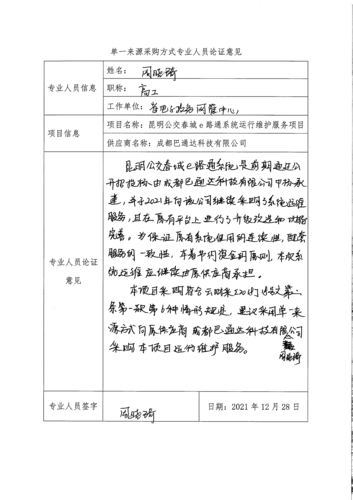 单一来源采购方式专业人员论证意见
专业人员信息
姓名：周晓琦
职称：高工
工作单位：省电子政务网管中心
项目信息
项目名称：昆明公交春城e路通系统运行维护服务项目
供应商名称：成都巴通达科技有限公司
专业人员论证意见
昆明公交春城e路通系统是前期通过公
开招投标由成都巴通达科技有限公司中标承
建，并于2021年向该公司继续采购了系统运维
服务，且在原有平台上进行了升级改造和功能
完善。为保证原有系统使用的连续性，配套
服务的一致性，本着节约资金的原则，本次系
统运维应继续由原供应商承担。
本项目采购符合云财采
条第一款第6种情形规定，建议采用单一来
源方式向原供应商成都巴通达科技有限公司
采购本项目运行维护服务。
周晓琦
专业人员签字
周晓琦
日期：2021年12月28日